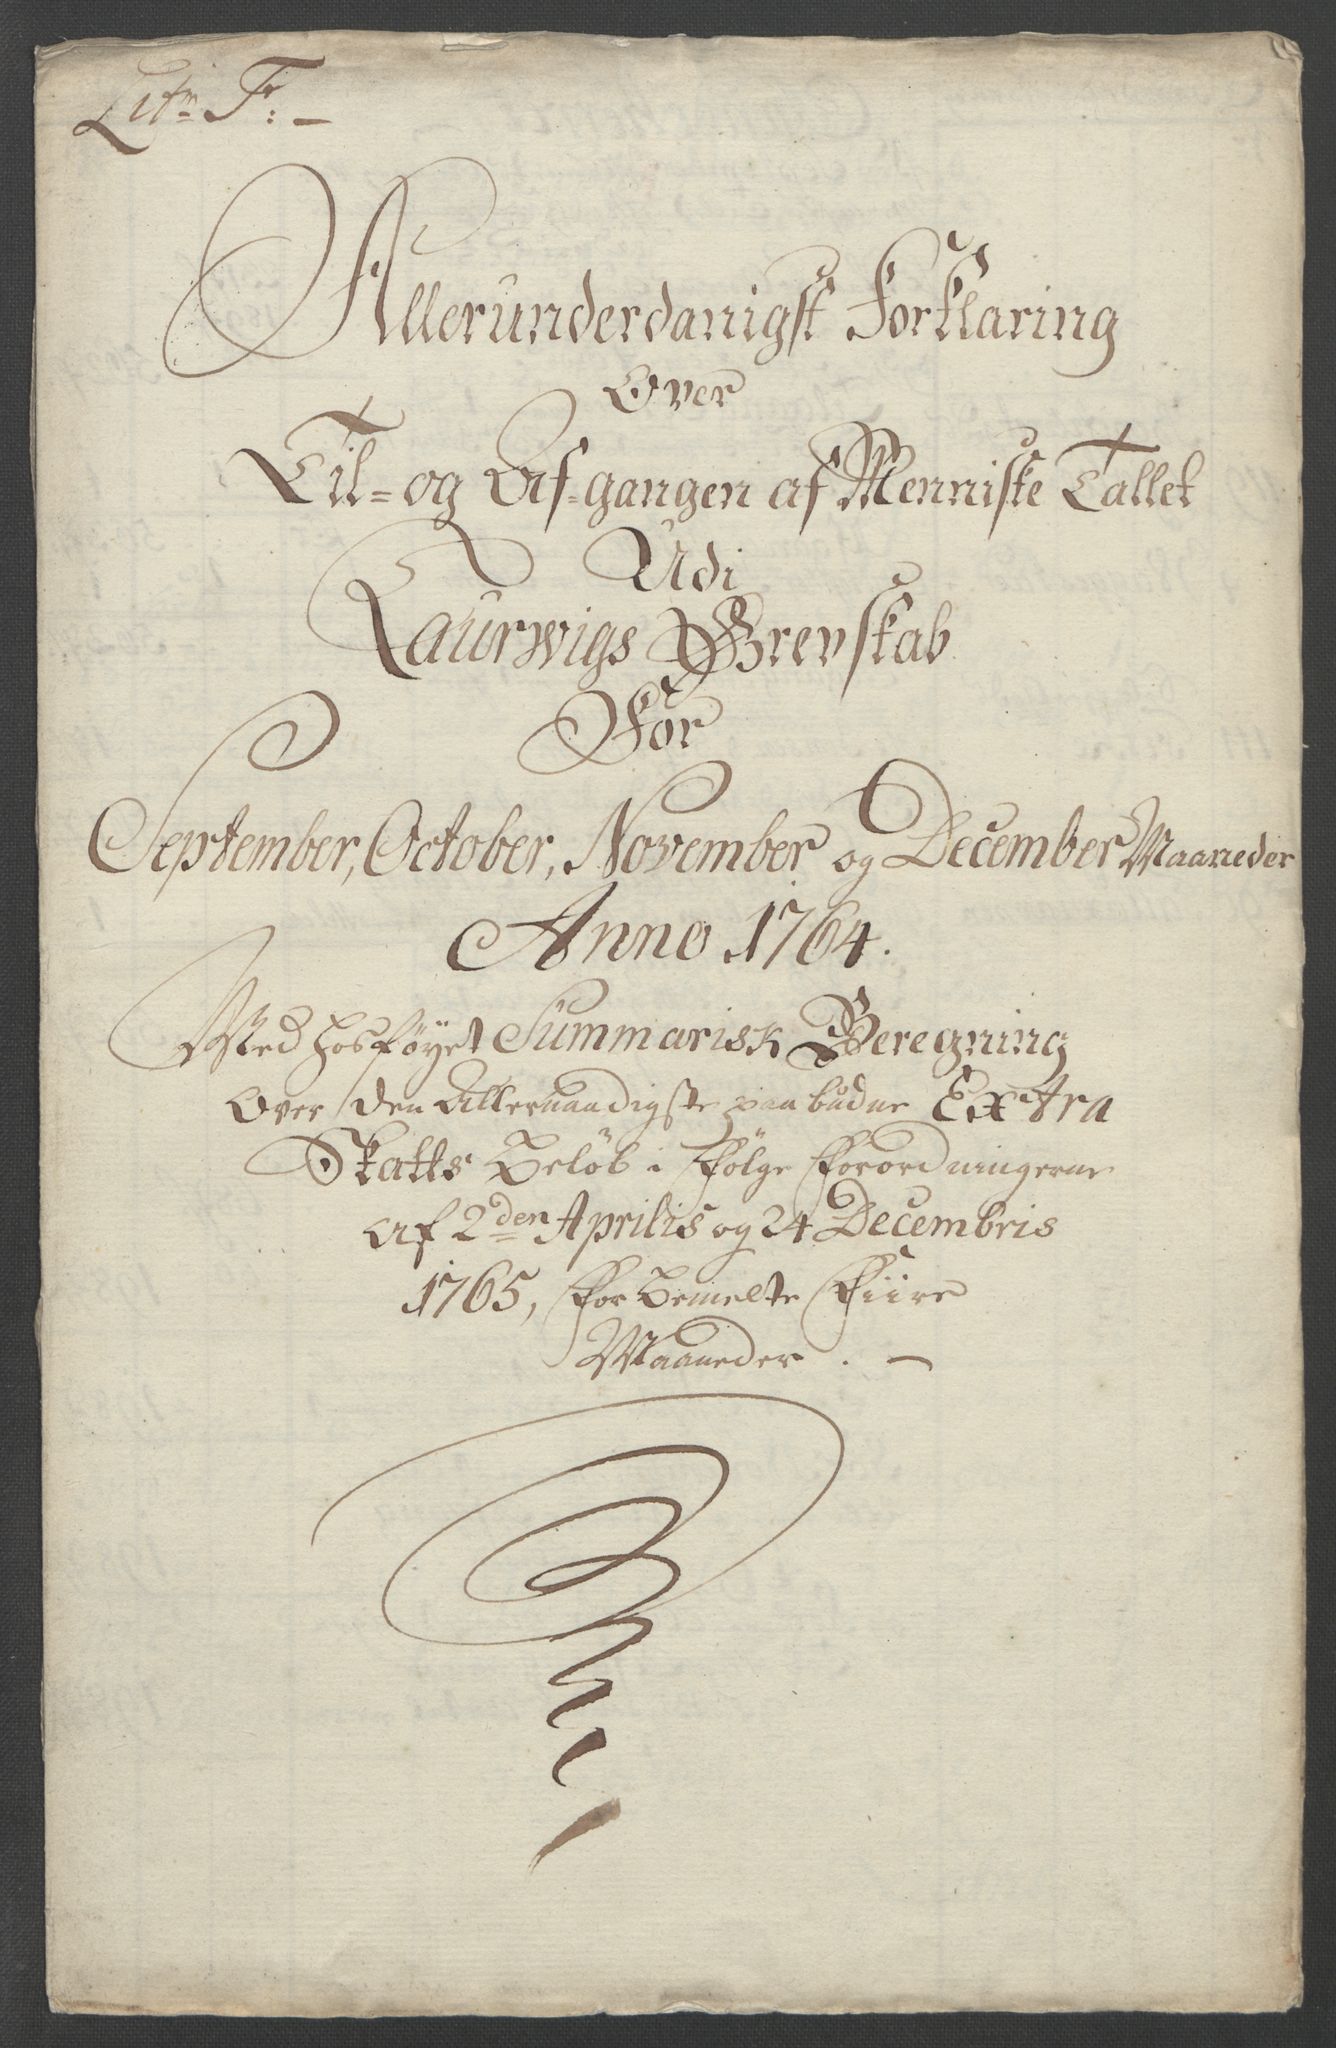 Litr: F: –
Allerunderdanigst Forklaring
Over
Til- og Af-gangen af Menniske Tallet
Udi
Laurwigs Grevskab
For
September, October, November og December Maaneder
Anno 1764.
Med hosføyet Summarisk Beregning
Over den Allernaadigste paabudne Extra
Skatts Beløb i Følge Forordningerne
af 2den Aprilis og 24 Decembris
1765, for bemelte Fiire
Maaneder. –